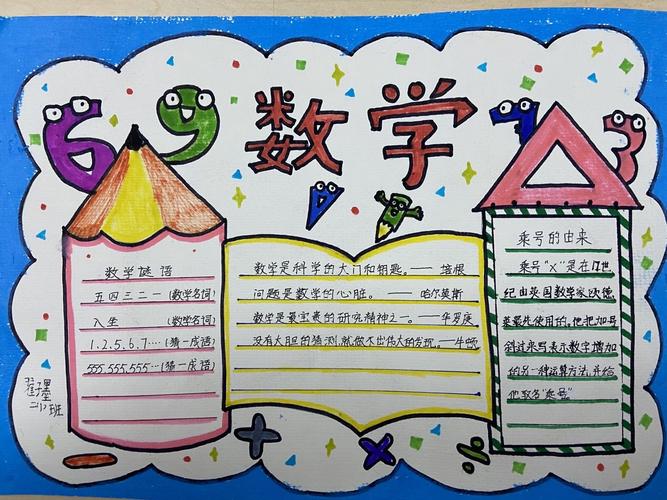 69 数学 7 3
数学谜语
五四三二一 (数学名词)
入坐 (数学名词)
1.2.5.6.7…(猜一成语)
555.555.555…(猜一成语)
翟子墨
二(1)班
数学是科学的大门和钥匙。——培根
问题是数学的心脏。——哈尔莫斯
数学是最宝贵的研究精神之一。——华罗庚
没有大胆的猜测,就做不出伟大的发现。——牛顿
乘号的由来
乘号"×"是在17世
纪由英国数学家欧德
莱最先使用的,他把加号
斜过来写表示数字增加
的另一种运算方法,并给
他取名"乘号"